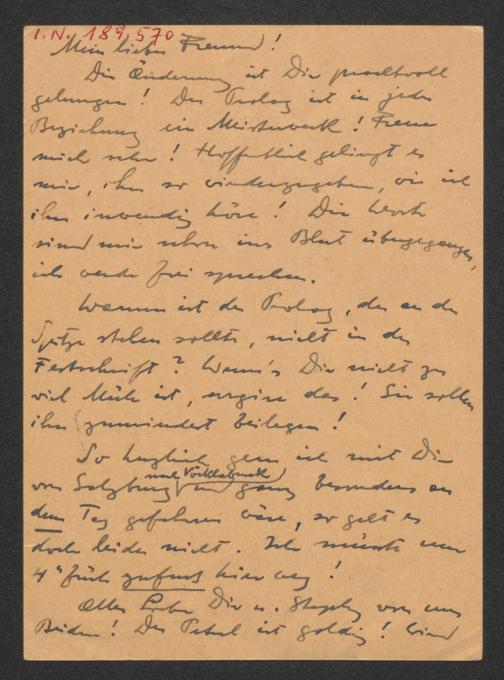 I.N. 189.570
Mein lieber Freund!
Die Änderung ist Dir prachtvoll
gelungen! Der Prolog ist in jeder
Beziehung ein Meisterwerk! Freue
mich sehr! Hoffentlich gelingt es
mir, ihn so wiederzugeben, wie ich
ihn inwendig höre! Die Worte
sind mir schon ins Blut übergegangen,
ich werde frei sprechen.
Warum ist der Prolog, der an der
Spitze stehen sollte, nicht in der
Festschrift? Wenn's Dir nicht zu
viel Mühe ist, urgire das! Sie sollen
ihn zumindest beilegen!
So herzlich gern ich mit Dir
von Salzburg nach Vöcklabruck und ganz besonders an
dem Tag gefahren wäre, so geht es
doch leider nicht. Ich müsste um
4h früh zufuss hier weg!
Alles Liebe Dir u. von uns
Beiden! Der Peterl ist goldig! Wird